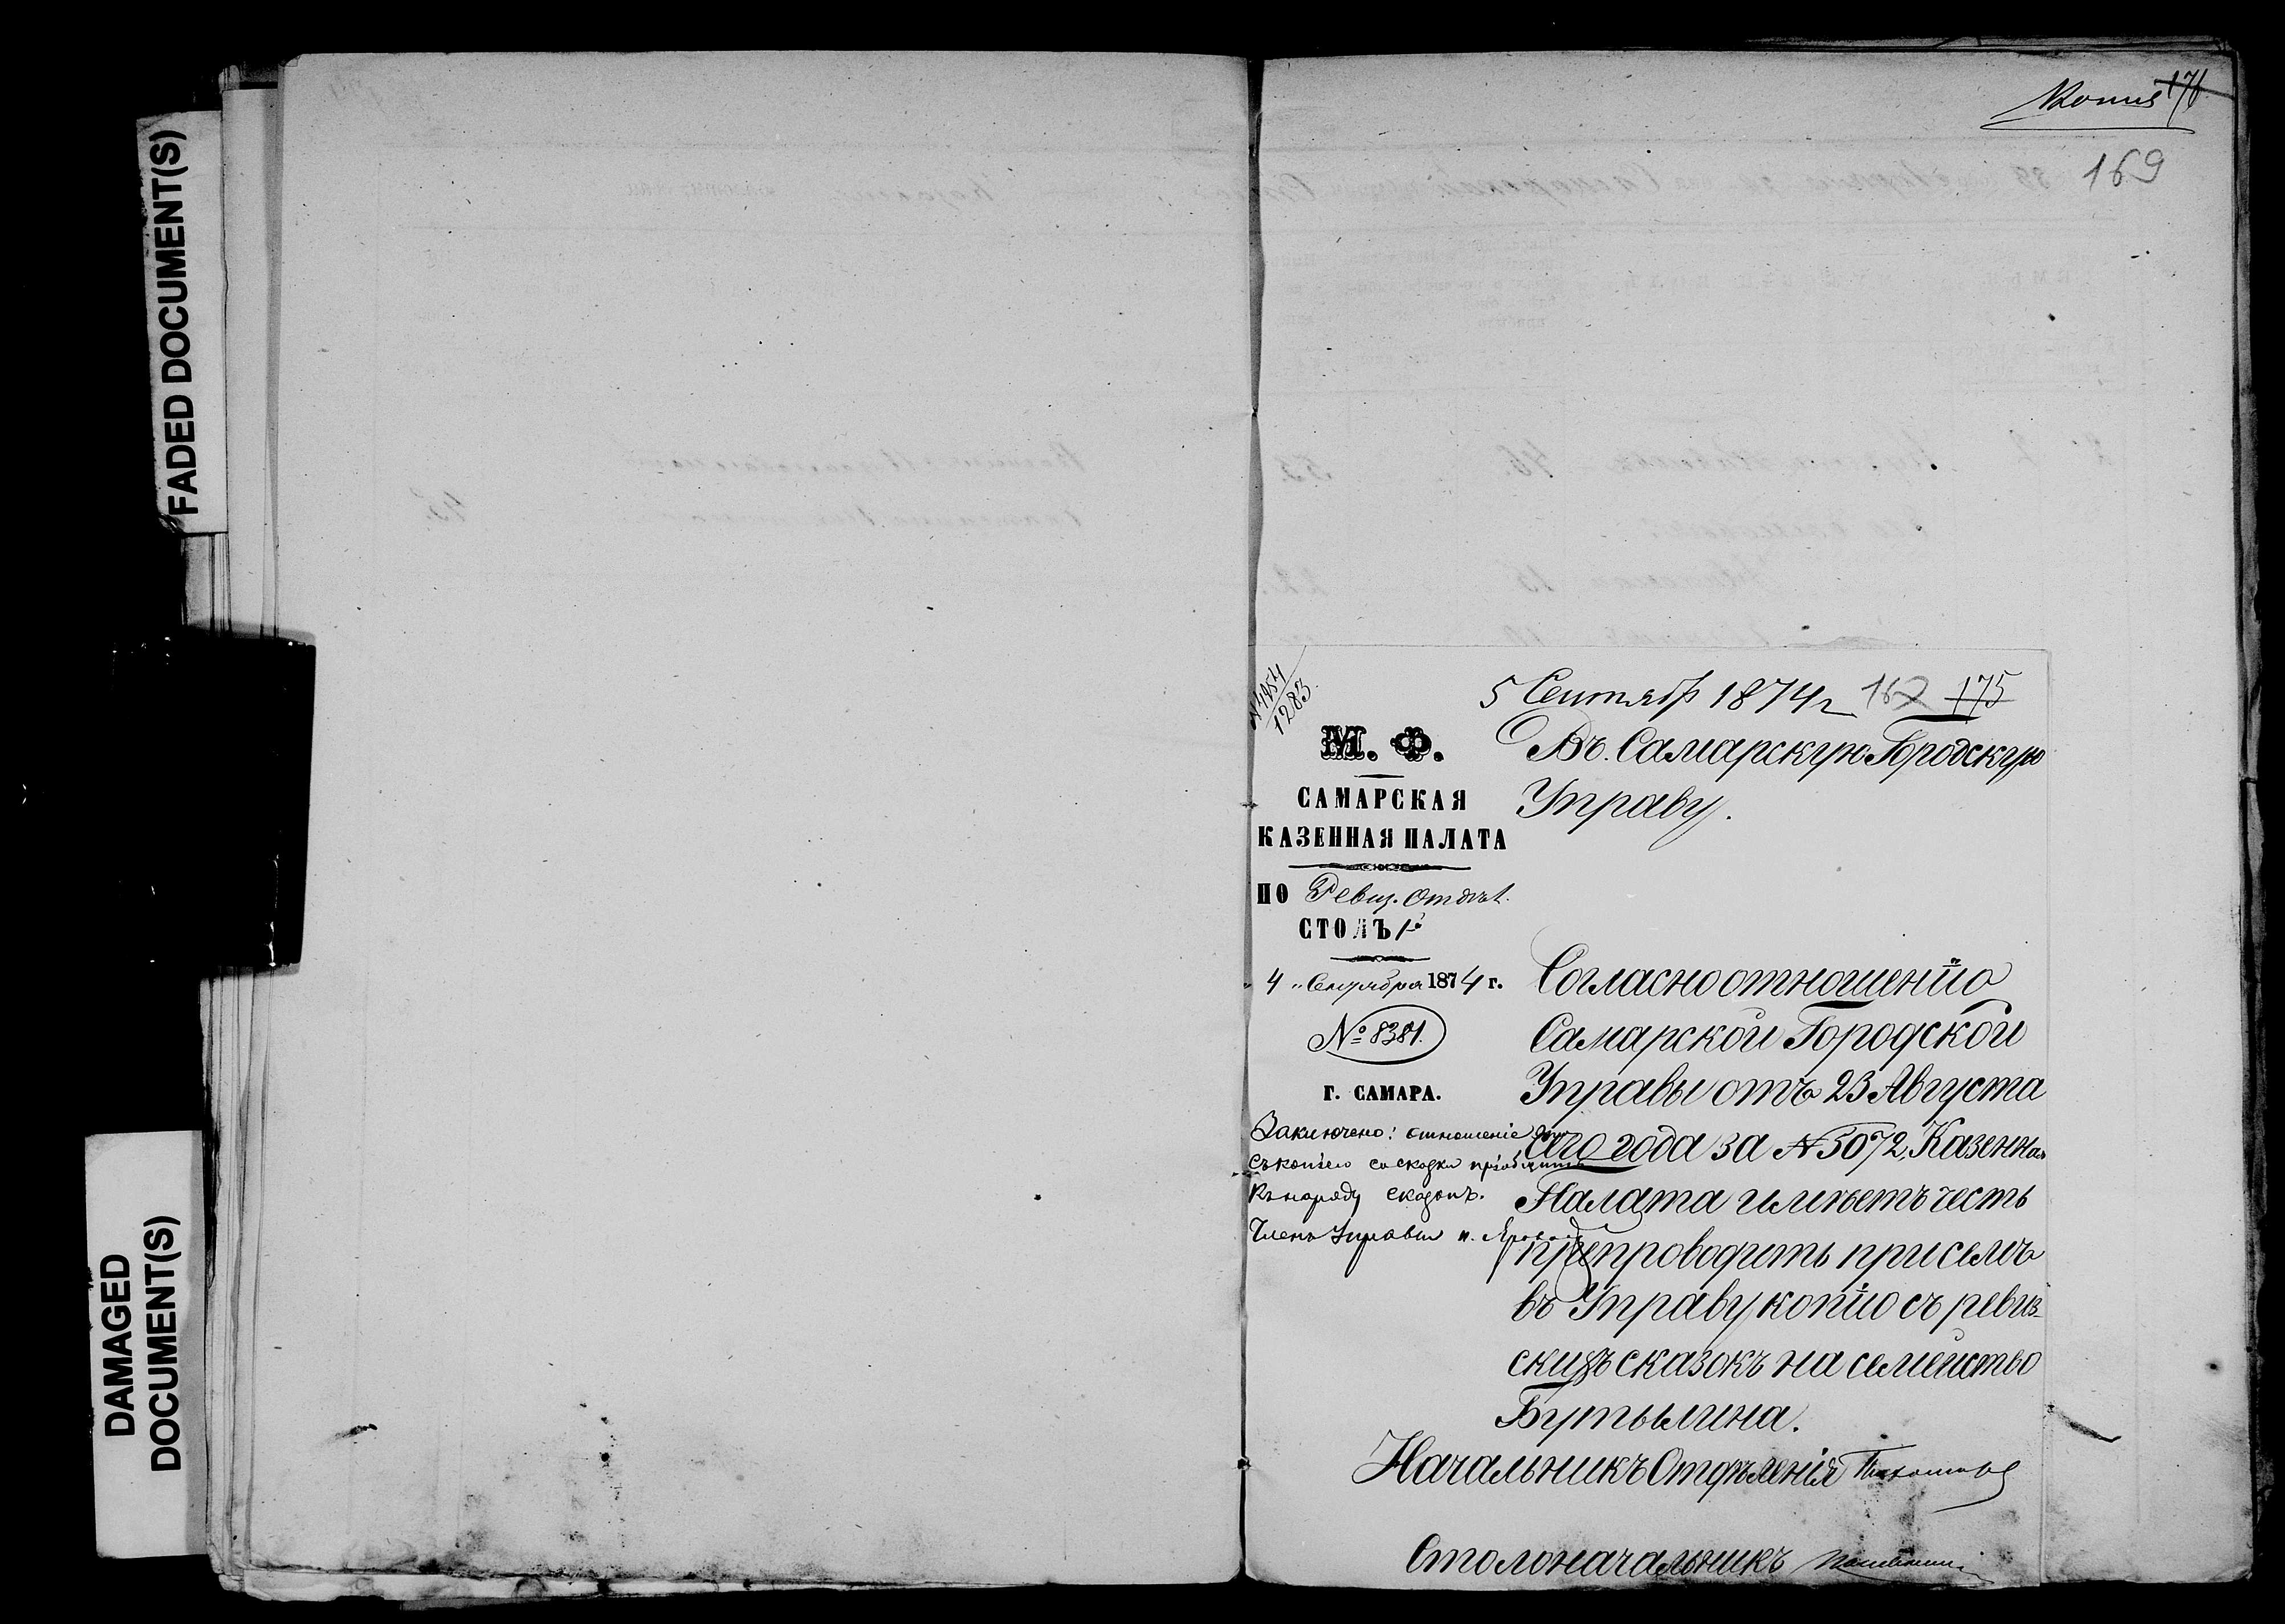 FADED DOCUMENT(S)
DAMAGED
DOCUMENT(S)
Копия 176
169
1283
5 Сентябр 1874 г 167 175
М. Ф.
САМАРСКАЯ
КАЗЕННАЯ ПАЛАТА
ПО Ревиз. Отдѣл.
СТОЛЪ 1й
4 " Сентября 1874 г.
№ 8381.
Г. САМАРА.
Заключено: отношеніе это
съ копіею со сказки пріобщить
къ наряду сказокъ.
Членъ Управы
Въ Самарскую Городскую
Управу.
Согласно отношенію
Самарской Городской
Управы отъ 23 Августа
сего года за № 5072, Казенная
Палата имѣетъ честь
препроводить при семъ
въ Управу копію съ ревиз-
скихъ сказокъ на семейство
Бутылина.
Начальникъ Отдѣленія
Столоначальникъ